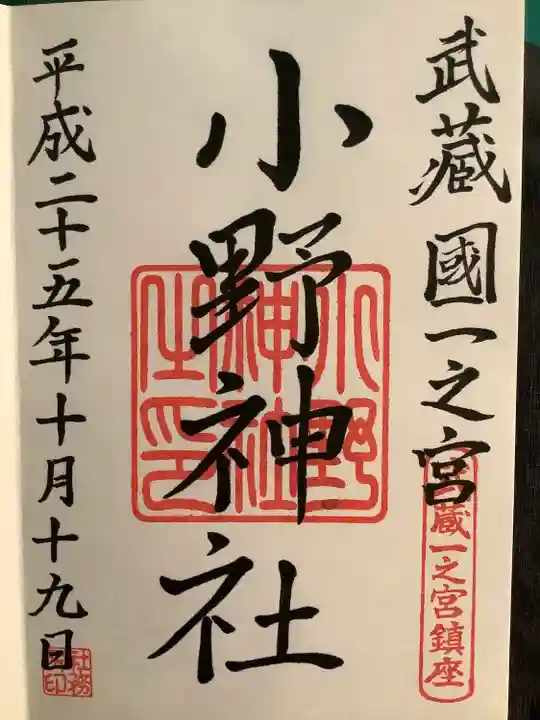 武蔵國一之宮
武蔵一之宮鎮座
小野神社
小野
神社
之印
平成二十五年十月十九日
社務
之印